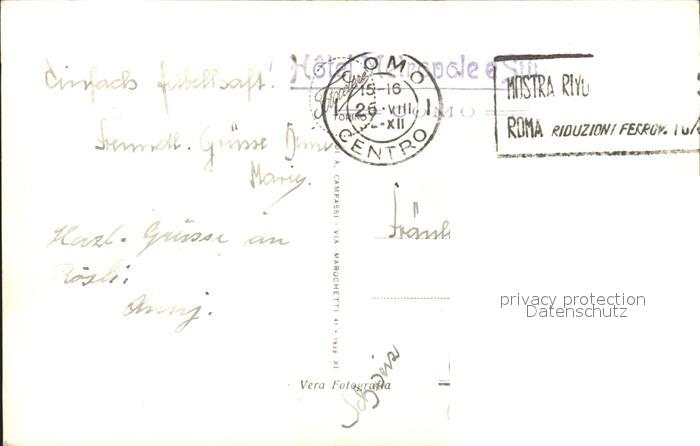 einfach fabelhaft!
Freundl. Grüsse
Herzl. Grüsse an
Rösli.
Hôtel Metropole e
COMO
COMO
15-16
26·VIII
-XII
CENTRO
TORINO
MOSTRA RIVO
ROMA RIDUZIONI FERROV.
A. CAMPASSI - VIA MAROCHETTI 41 - 1932 XI
Vera Fotografia
Schweiz
privacy protection
Datenschutz